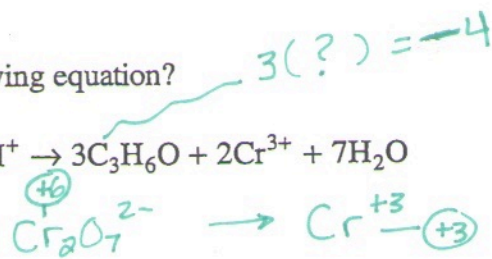 3(?) = -4
ing equation?
⁺ → 3C₃H₆O + 2Cr³⁺ + 7H₂O
+6
Cr₂O₇²⁻ → Cr⁺³ — +3